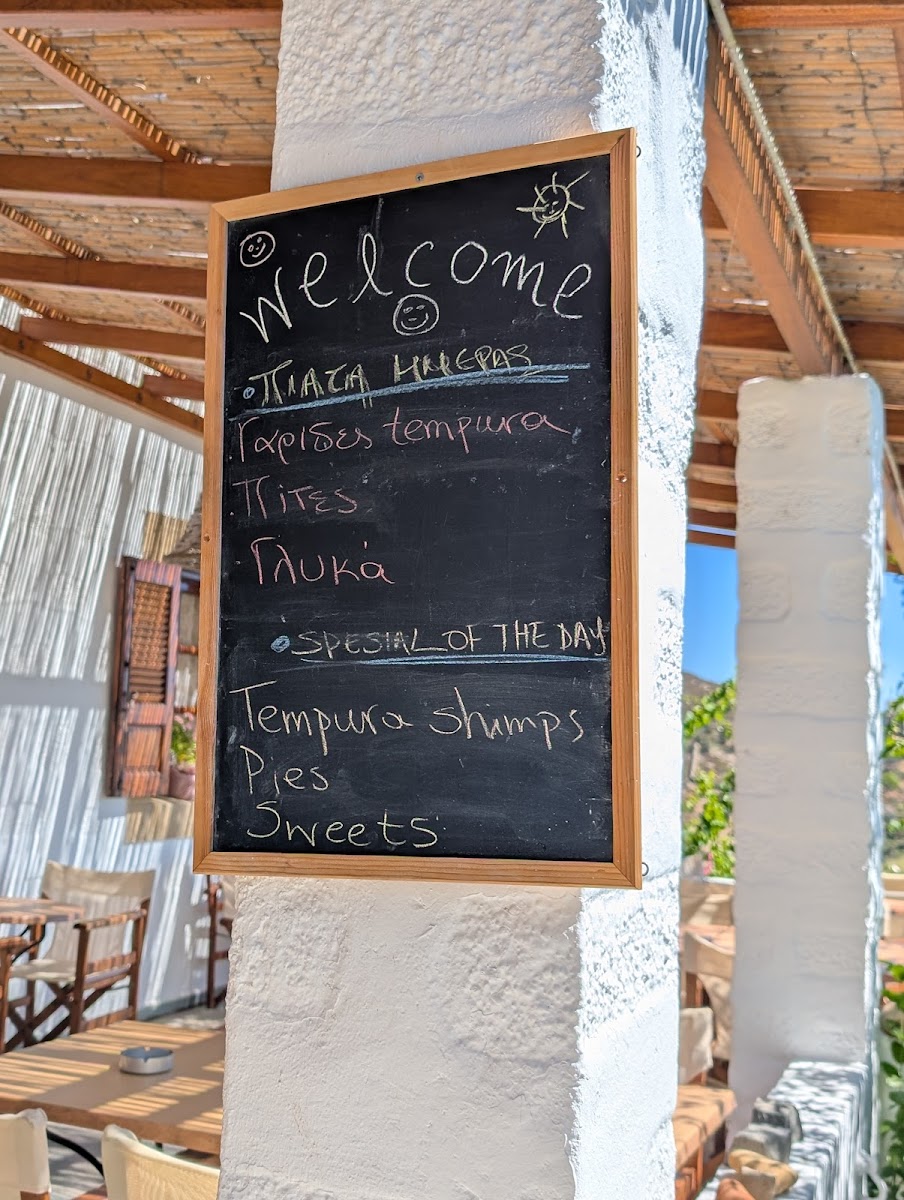 Welcome
ΠΙΑΤΑ ΗΜΕΡΑΣ
Γαριδες tempura
Πιτες
Γλυκά
SPESIAL OF THE DAY
Tempura shimps
Pies
Sweets